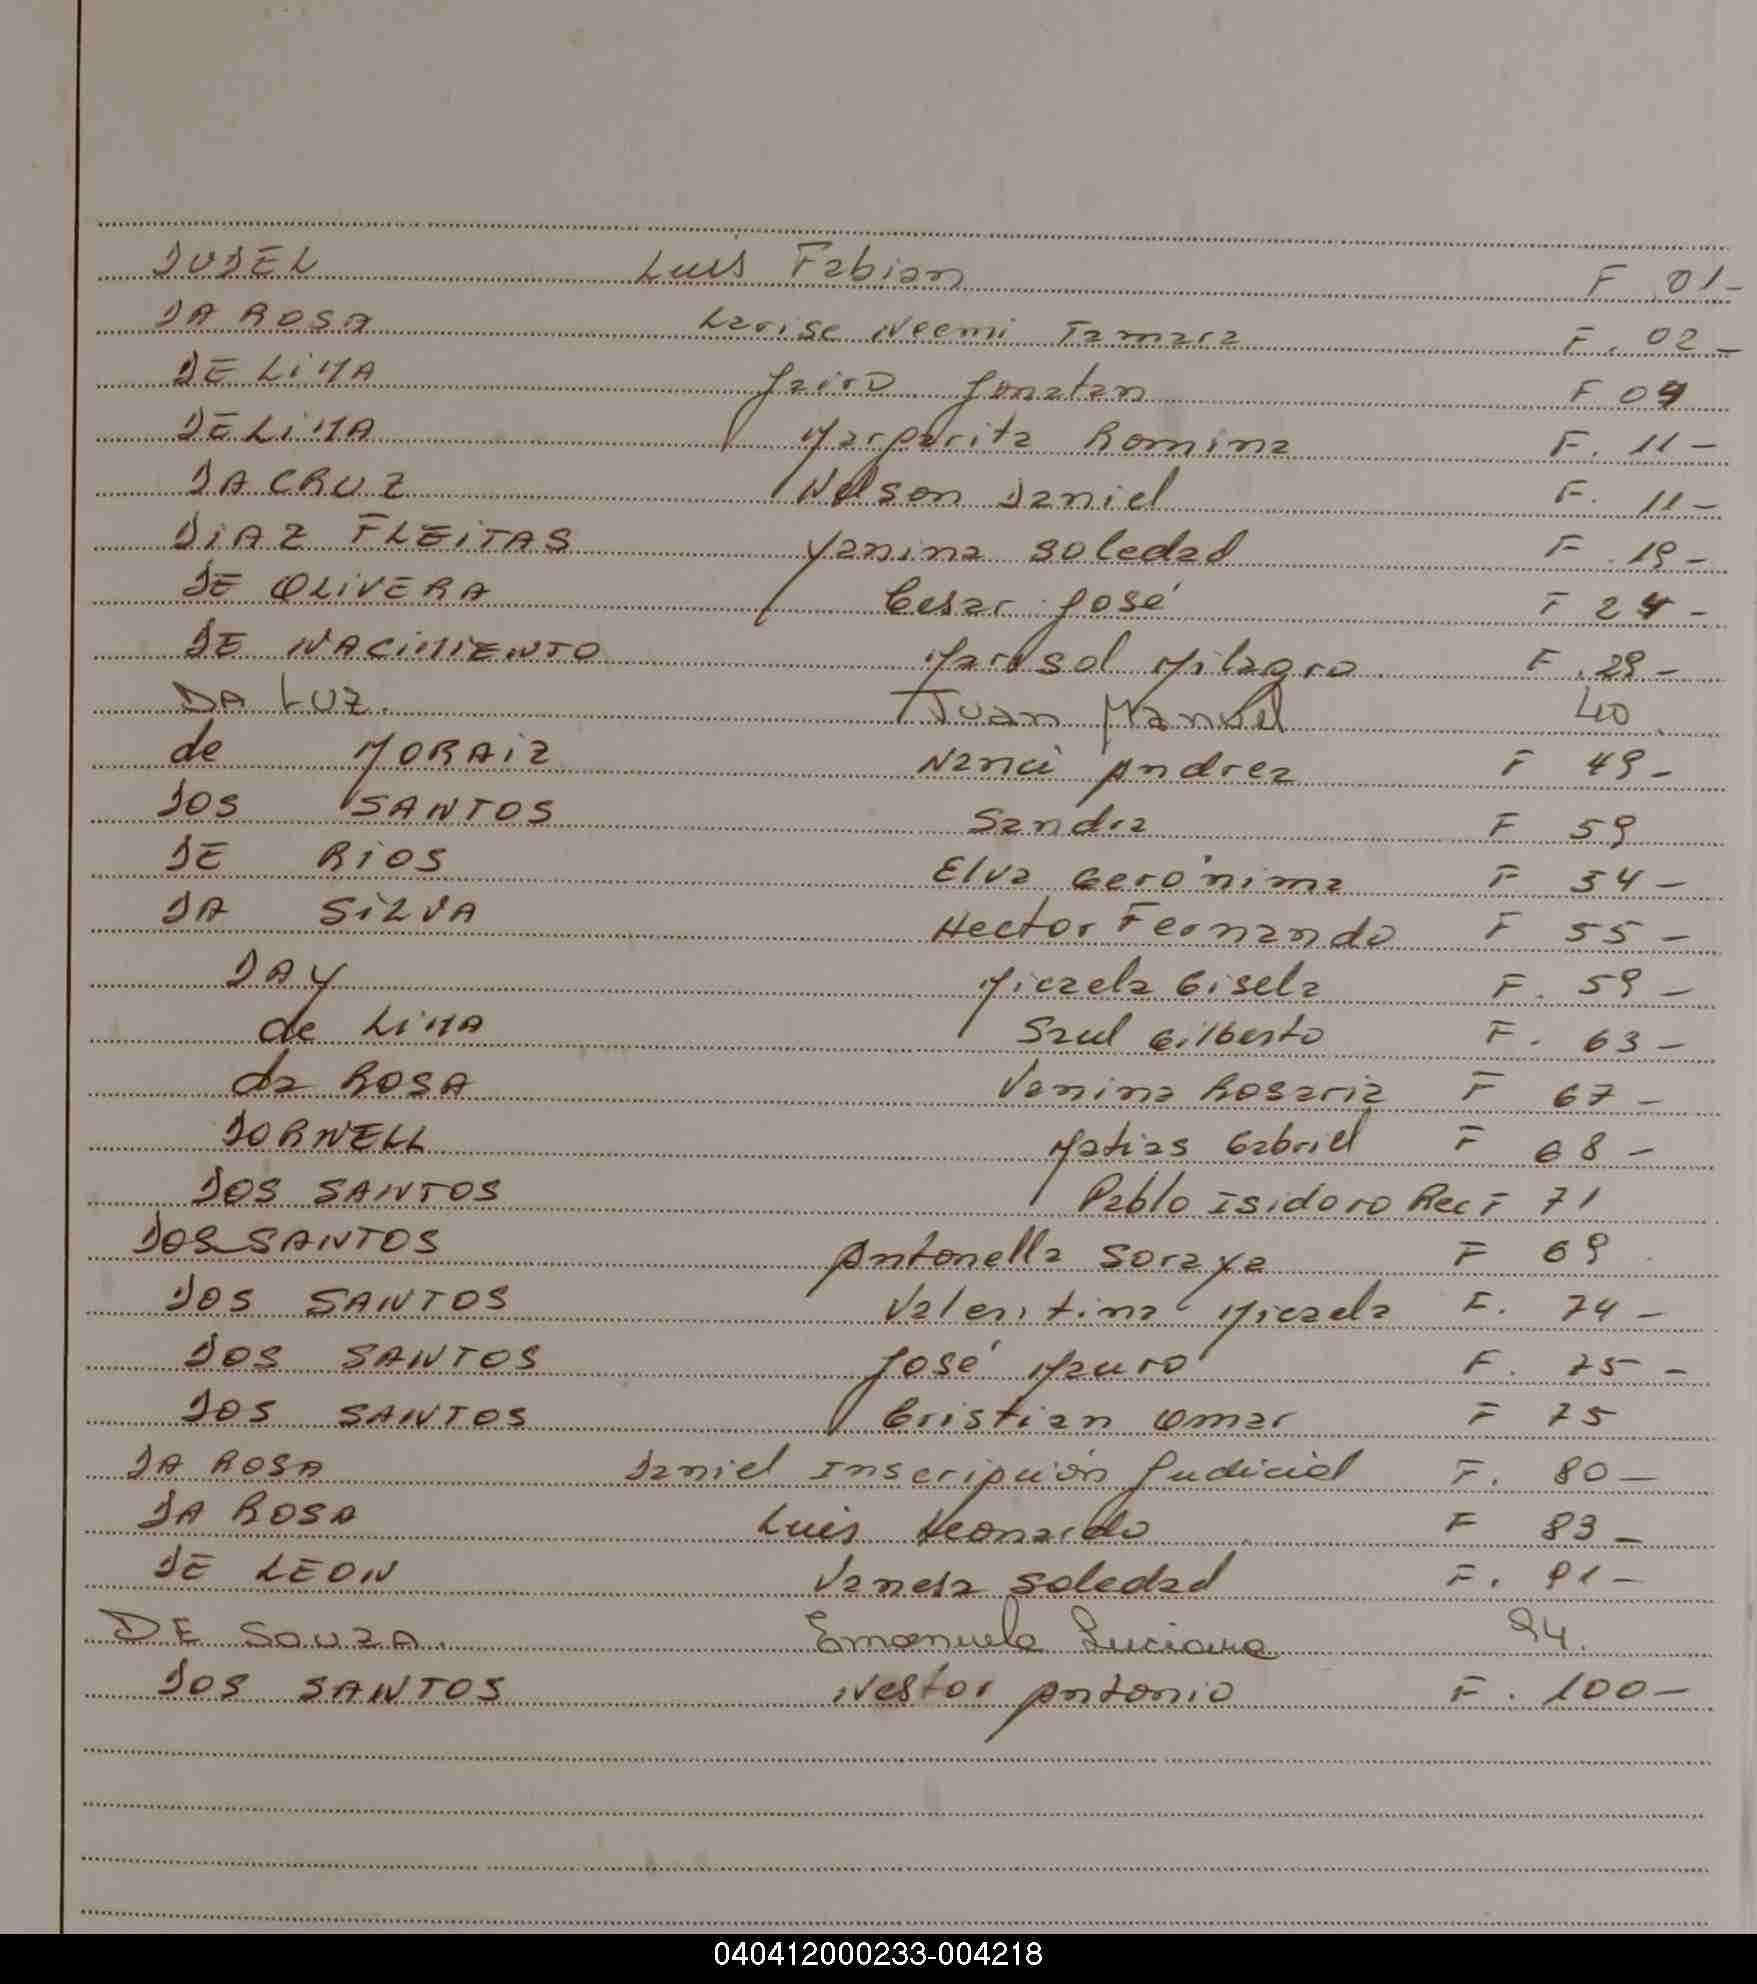 DUDEL Luis Fabian F 01-
DA ROSA Larise Neemi Tamara F. 02-
DE LIMA Jairo Jonatan F 04
DE LIMA Margarita Romina F. 11-
DA CRUZ Nelson Daniel F. 11-
DIAZ FLEITAS Yanina Soledad F. 19-
DE OLIVERA Cesar José F 24-
DE NACIMIENTO Marisol Milagro F. 29-
DA LUZ. Juan Manuel 40
de MORAIZ Nanci Andrea F 49-
DOS SANTOS Sandra F 59
DE RIOS Elva Gerónima F 54-
DA SILVA Hector Fernando F 55-
DAY Micaela Gisela F. 59-
de LIMA Saul Gilberto F. 63-
da ROSA Vanina Rosaria F 67-
DORNELL Matias Gabriel F 68-
DOS SANTOS Pablo Isidoro Rec F 71
DOS SANTOS Antonella Soraya F 69
DOS SANTOS Valentina Micaela F. 74-
DOS SANTOS José Mauro F. 75-
DOS SANTOS Cristian Omar F 75
DA ROSA Daniel Inscripción Judicial F. 80-
DA ROSA Luis Leonardo F 83-
DE LEON Vanesa Soledad F. 91-
DE SOUZA. Emanuela Luciana 94.
DOS SANTOS Nestor Antonio F. 100-
040412000233-004218